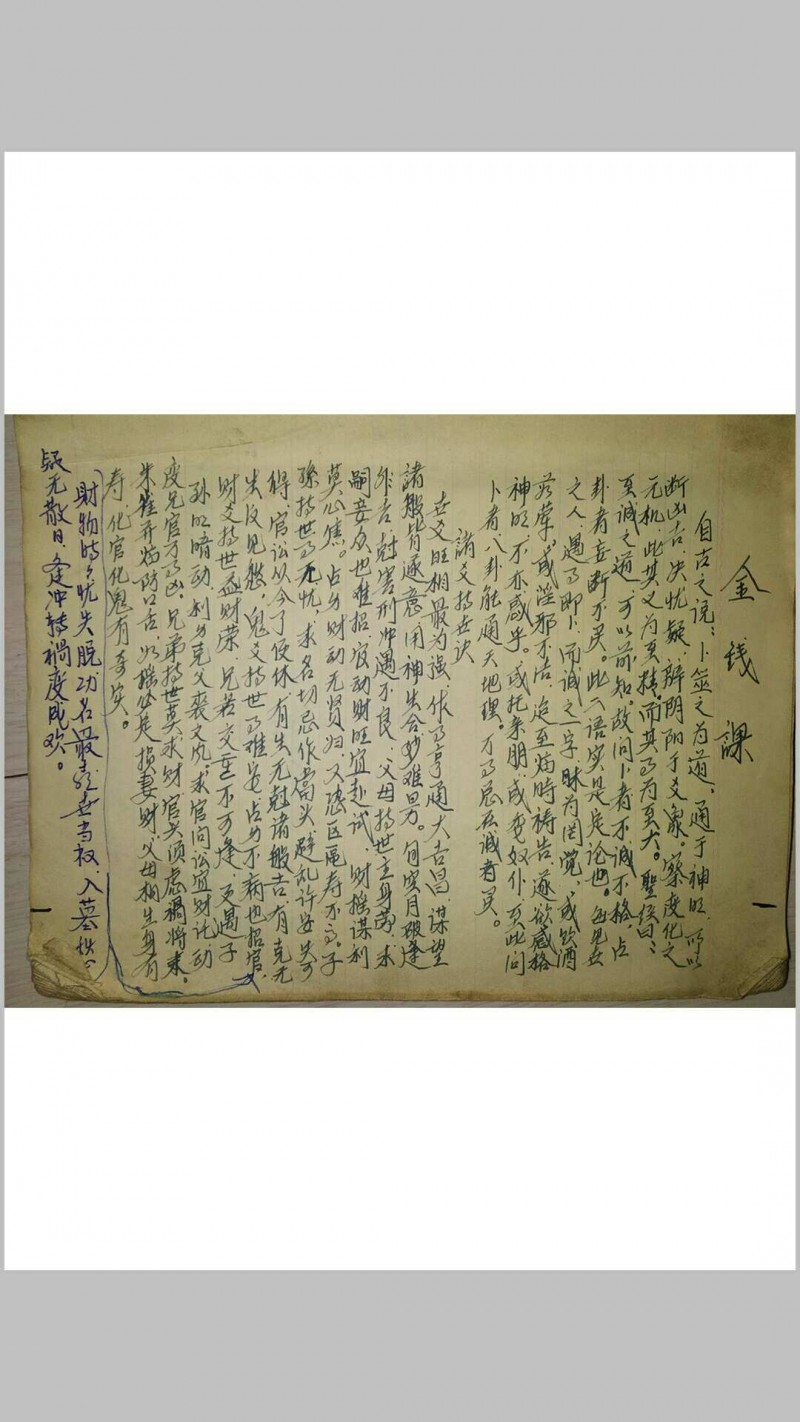 金 钱 課
自古之说：卜筮之为道，通于神明，所以
断凶吉，决忧疑，辨阴阳于爻象。察变化之
元机，此其义为至精，而其事为至大。聖侯曰：
至诚之道，可以前知。故问卜者不诚不格，占
卦者妄断不灵。此二语实是定论也。每见世
之人，遇事即卜，而诚之一字，昧为罔觉，或饮酒
茹荤，或淫邪不洁，迨至焰時祷告，遂欲感格
神明，不亦惑乎。或托亲朋，或委奴仆，至此问
卜者，八卦能通天地理。万事总在诚者灵。
諸爻持世诀
世爻旺相最为强，作事亨通大吉昌，谋望
諸般皆遂意，用神生合妙难量。旬空月破逢
非吉，尅害刑冲遇不良，父母持世主身劳，求
嗣妾众也难招，官动财旺宜赴试，财摇谋利
莫心焦。占身财动无贤妇，又恐区区寿不高。子
孫持世事无忧，求名切忌作當头，避乱许安失可
得，官讼从今了便休，有生无尅诸般吉，有克无
生反见愁，鬼爻持世事难安，占身不病也招官，
财爻持世益财荣，兄若交重不可逢，更遇子
孙明暗动，利身克父丧文风。求官问讼宜财托，动
变兄官万事凶，兄弟持世莫求财，官兴须虑禍将来，
朱雀并焰防口舌，如摇必是损妻财，父母相生身有
寿，化官化鬼有奇灾。
財物時々忧失脱，功名最喜世当权，入墓
疑无散日，逢冲转禍变成欢。